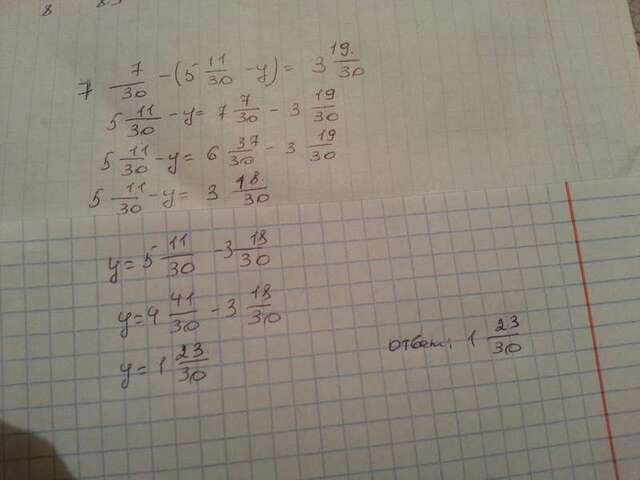 8 8.5
7 7/30 - (5 11/30 - y) = 3 19/30
5 11/30 - y = 7 7/30 - 3 19/30
5 11/30 - y = 6 37/30 - 3 19/30
5 11/30 - y = 3 18/30
y = 5 11/30 - 3 18/30
y = 4 41/30 - 3 18/30
y = 1 23/30
ответ: 1 23/30